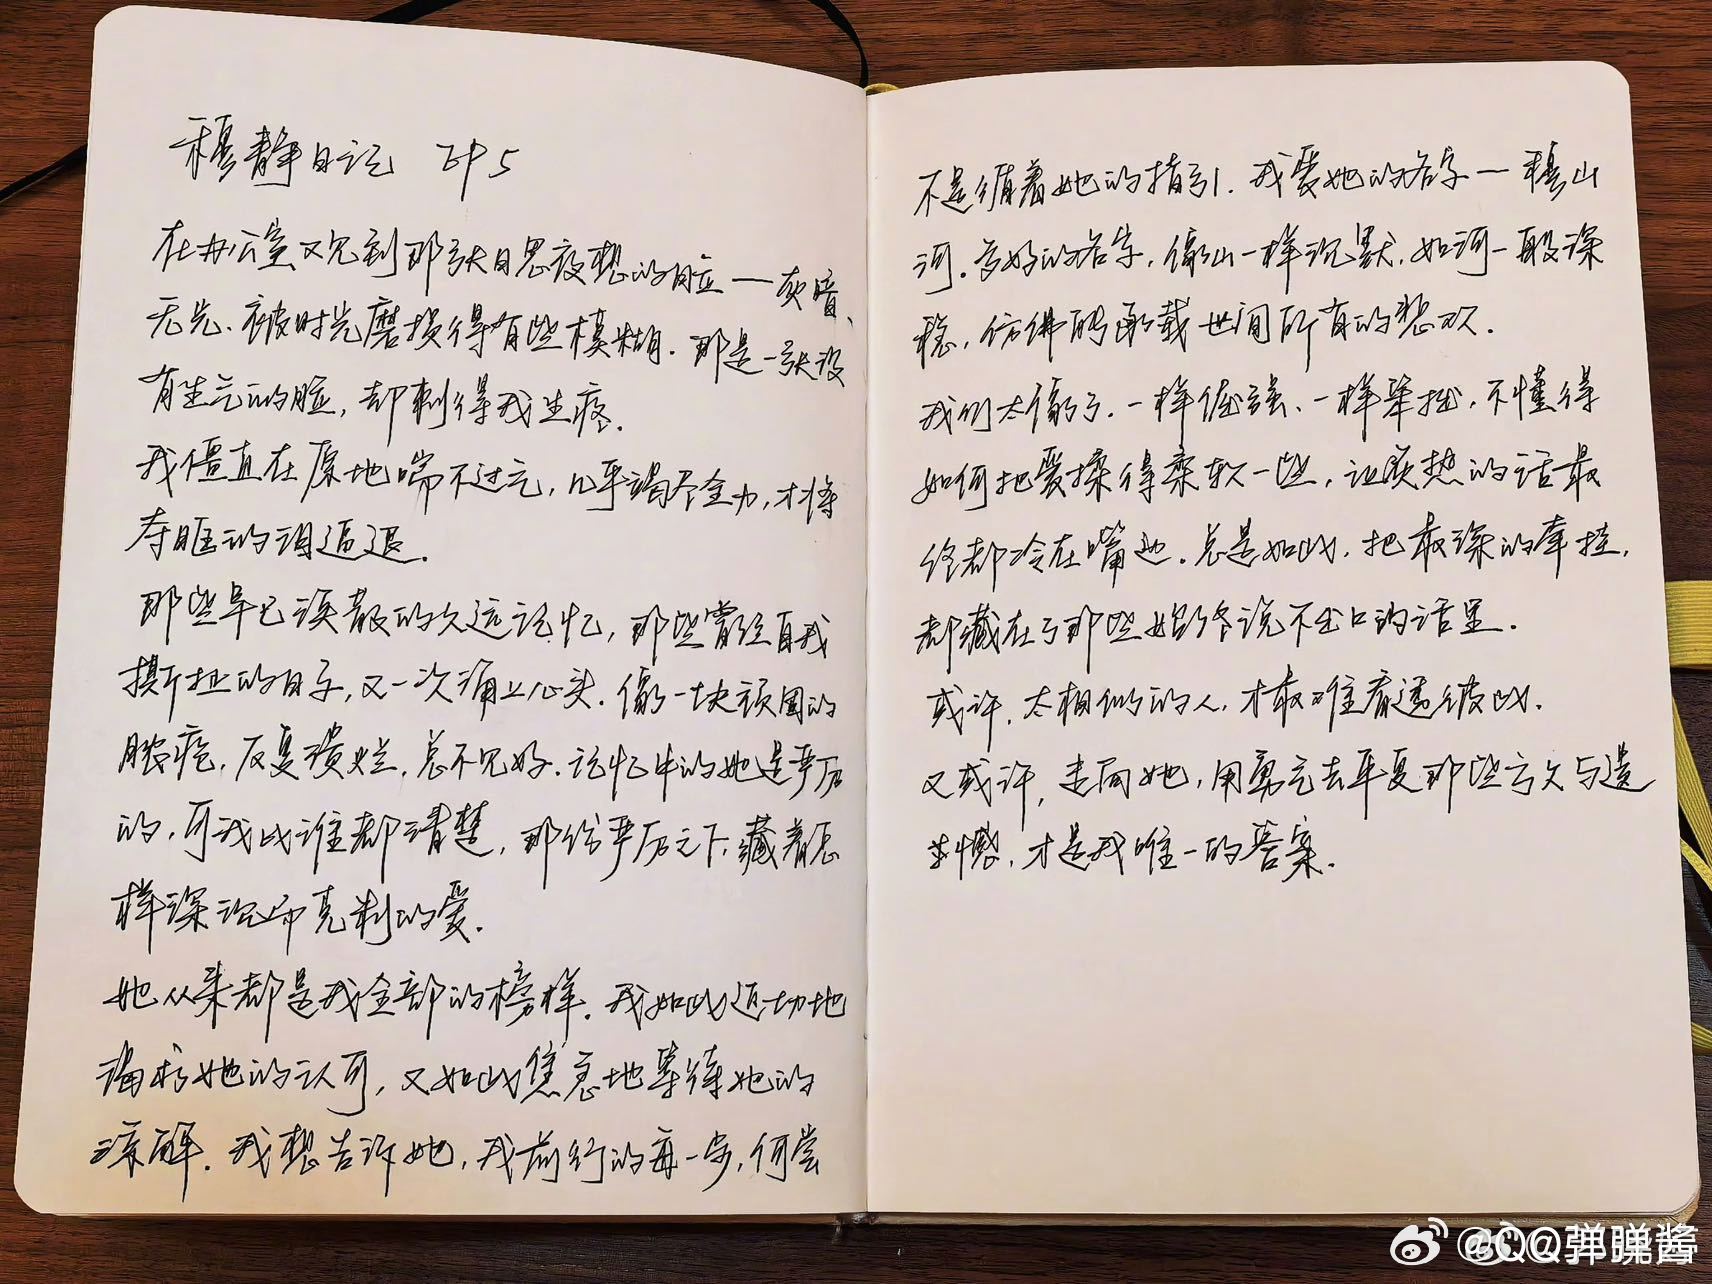 穆静日记 EP 5
在办公室又见到那张日思夜想的脸——灰暗、
无光、被时光磨损得有些模糊. 那是一张没
有生气的脸, 却刺得我生疼.
我僵直在原地喘不过气, 几乎竭尽全力, 才将
夺眶的泪逼退.
那些早已涣散的久远记忆, 那些曾经自我
撕扯的日子, 又一次涌上心头. 像一块顽固的
脓疮, 反复溃烂, 总不见好. 记忆中的她是严厉
的, 可我比谁都清楚, 那份严厉之下, 藏着怎
样深沉而克制的爱.
她从来都是我全部的榜样. 我如此迫切地
渴求她的认可, 又如此焦急地等待她的
谅解. 我想告诉她, 我前行的每一步, 何尝
不是循着她的指引. 我爱她的名字——穆山
河. 多好的名字, 像山一样沉默, 如河一般深
稳, 仿佛能承载世间所有的悲欢.
我们太像了. 一样倔强、一样笨拙, 不懂得
如何把爱揉得柔软一些, 让滚热的话最
终都冷在嘴边. 总是如此, 把最深的牵挂,
都藏在了那些始终说不出口的话里.
或许, 太相似的人, 才最难看透彼此.
又或许, 走向她, 用勇气去平复那些亏欠与遗
憾, 才是我唯一的答案.
@QQ弹弹酱